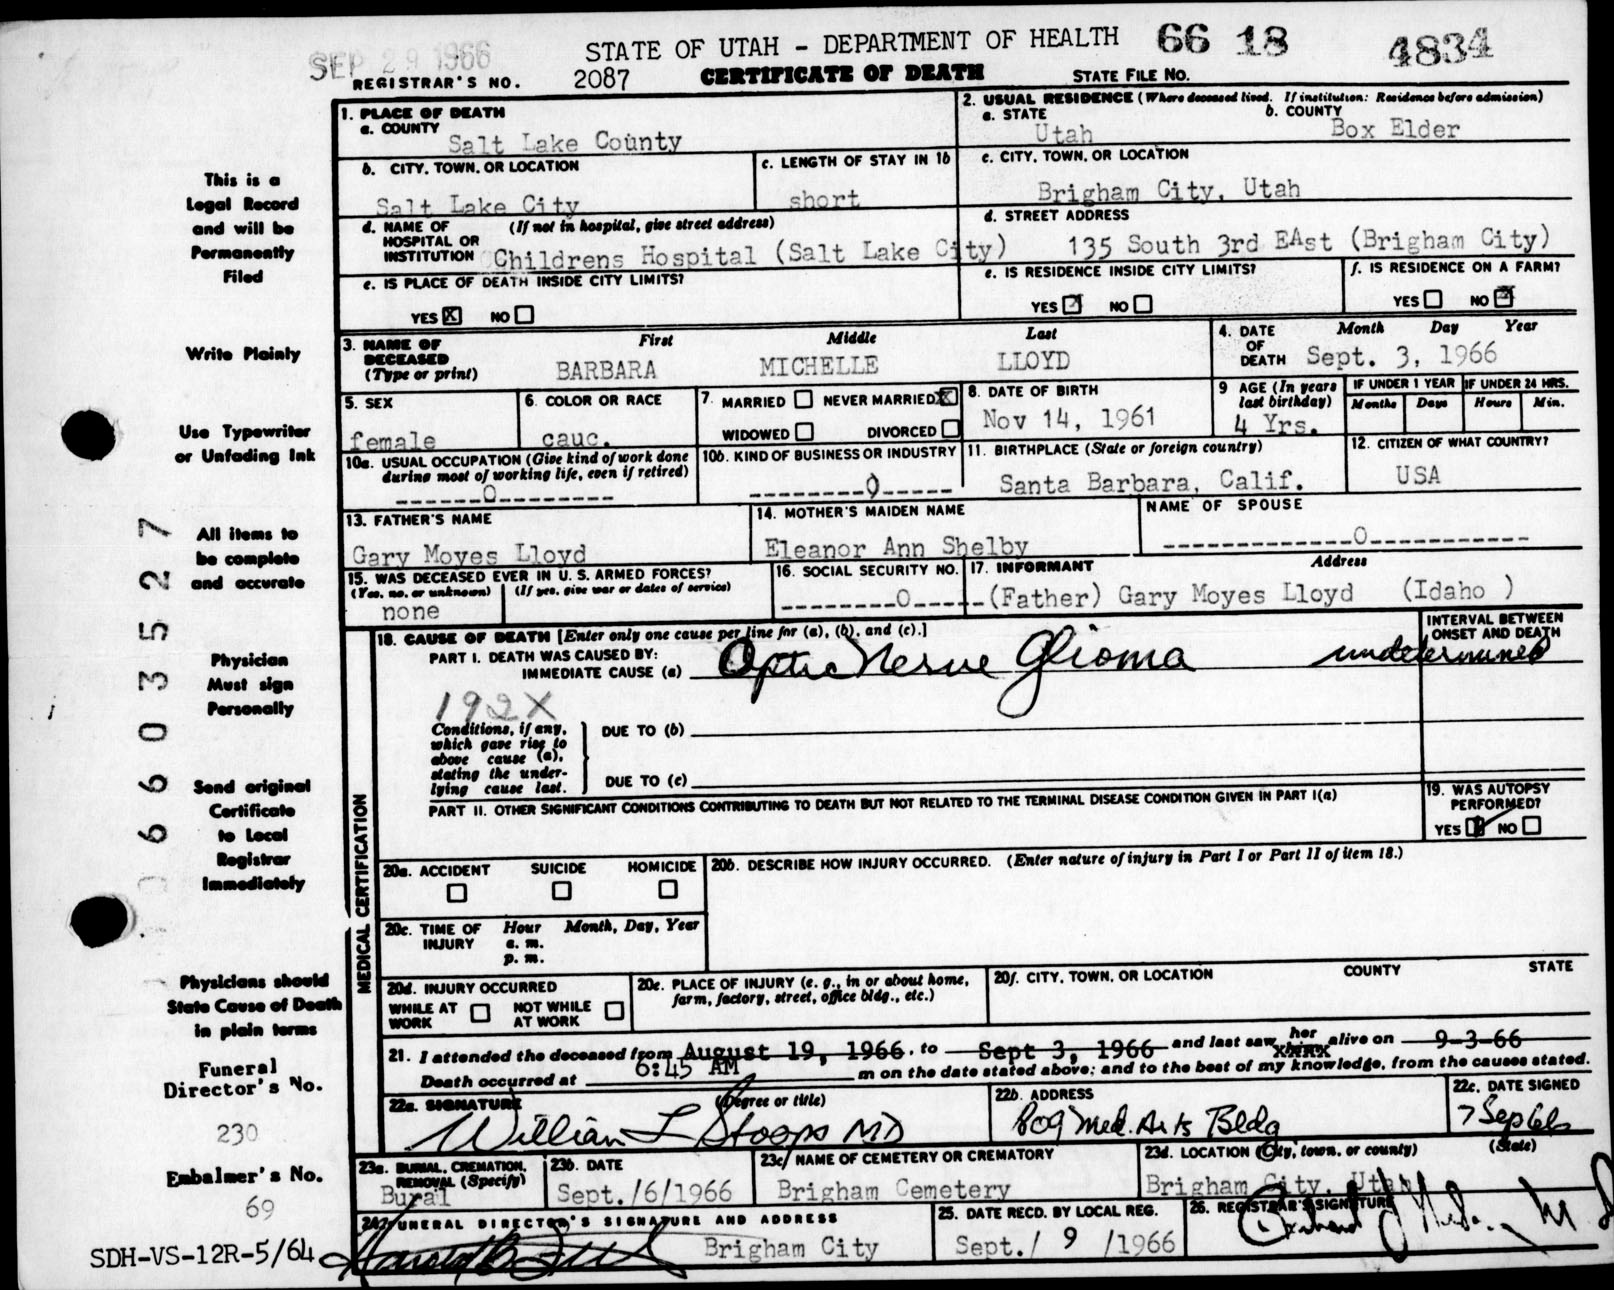 SEP 29 1966
STATE OF UTAH - DEPARTMENT OF HEALTH 66 18 4834
REGISTRAR'S NO. 2087 CERTIFICATE OF DEATH STATE FILE NO.
1. PLACE OF DEATH
a. COUNTY
Salt Lake County
2. USUAL RESIDENCE (Where deceased lived. If institution: Residence before admission)
a. STATE b. COUNTY
Utah Box Elder
b. CITY, TOWN, OR LOCATION
Salt Lake City
c. LENGTH OF STAY IN 1b
short
c. CITY, TOWN, OR LOCATION
Brigham City, Utah
d. NAME OF HOSPITAL OR INSTITUTION (If not in hospital, give street address)
Childrens Hospital (Salt Lake City)
d. STREET ADDRESS
135 South 3rd EAst (Brigham City)
e. IS PLACE OF DEATH INSIDE CITY LIMITS?
YES X NO
e. IS RESIDENCE INSIDE CITY LIMITS?
YES NO
f. IS RESIDENCE ON A FARM?
YES NO
3. NAME OF DECEASED (Type or print)
First Middle Last
BARBARA MICHELLE LLOYD
4. DATE OF DEATH Month Day Year
Sept. 3, 1966
5. SEX
female
6. COLOR OR RACE
cauc.
7. MARRIED NEVER MARRIED X
WIDOWED DIVORCED
8. DATE OF BIRTH
Nov 14, 1961
9 AGE (In years last birthday)
4 Yrs.
IF UNDER 1 YEAR IF UNDER 24 HRS.
Months Days Hours Min.
10a. USUAL OCCUPATION (Give kind of work done during most of working life, even if retired)
------0--------
10b. KIND OF BUSINESS OR INDUSTRY
--------0-----
11. BIRTHPLACE (State or foreign country)
Santa Barbara, Calif.
12. CITIZEN OF WHAT COUNTRY?
USA
13. FATHER'S NAME
Gary Moyes Lloyd
14. MOTHER'S MAIDEN NAME
Eleanor Ann Shelby
NAME OF SPOUSE
-------------0------------
15. WAS DECEASED EVER IN U. S. ARMED FORCES?
(Yes, no, or unknown) (If yes, give war or dates of service)
none
16. SOCIAL SECURITY NO.
--------0-----
17. INFORMANT Address
(Father) Gary Moyes Lloyd (Idaho )
MEDICAL CERTIFICATION
18. CAUSE OF DEATH [Enter only one cause per line for (a), (b), and (c).]
INTERVAL BETWEEN ONSET AND DEATH
PART I. DEATH WAS CAUSED BY:
IMMEDIATE CAUSE (a) Optic Nerve Glioma undetermined
192X
Conditions, if any, which gave rise to above cause (a), stating the underlying cause last.
DUE TO (b)
DUE TO (c)
PART II. OTHER SIGNIFICANT CONDITIONS CONTRIBUTING TO DEATH BUT NOT RELATED TO THE TERMINAL DISEASE CONDITION GIVEN IN PART I(a)
19. WAS AUTOPSY PERFORMED?
YES NO
20a. ACCIDENT SUICIDE HOMICIDE
20b. DESCRIBE HOW INJURY OCCURRED. (Enter nature of injury in Part I or Part II of item 18.)
20c. TIME OF INJURY Hour Month, Day, Year
a. m.
p. m.
20d. INJURY OCCURRED
WHILE AT WORK NOT WHILE AT WORK
20e. PLACE OF INJURY (e. g., in or about home, farm, factory, street, office bldg., etc.)
20f. CITY, TOWN, OR LOCATION COUNTY STATE
21. I attended the deceased from August 19, 1966, to Sept 3, 1966 and last saw her alive on 9-3-66
Death occurred at 6:45 AM m on the date stated above; and to the best of my knowledge, from the causes stated.
22a. SIGNATURE (Degree or title)
William L Stoops MD
22b. ADDRESS
809 Med. Arts Bldg
22c. DATE SIGNED
7 Sep 66
23a. BURIAL, CREMATION, REMOVAL (Specify)
Bural
23b. DATE
Sept./6/1966
23c. NAME OF CEMETERY OR CREMATORY
Brigham Cemetery
23d. LOCATION (City, town, or county) (State)
Brigham City, Utah
24. FUNERAL DIRECTOR'S SIGNATURE AND ADDRESS
Brigham City
25. DATE RECD. BY LOCAL REG.
Sept./ 9 /1966
26. REGISTRAR'S SIGNATURE
This is a
Legal Record
and will be
Permanently
Filed
Write Plainly
Use Typewriter
or Unfading Ink
All items to
be complete
and accurate
Physician
Must sign
Personally
Send original
Certificate
to Local
Registrar
Immediately
Physicians should
State Cause of Death
in plain terms
Funeral
Director's No.
230
Embalmer's No.
69
SDH-VS-12R-5/64
66035527